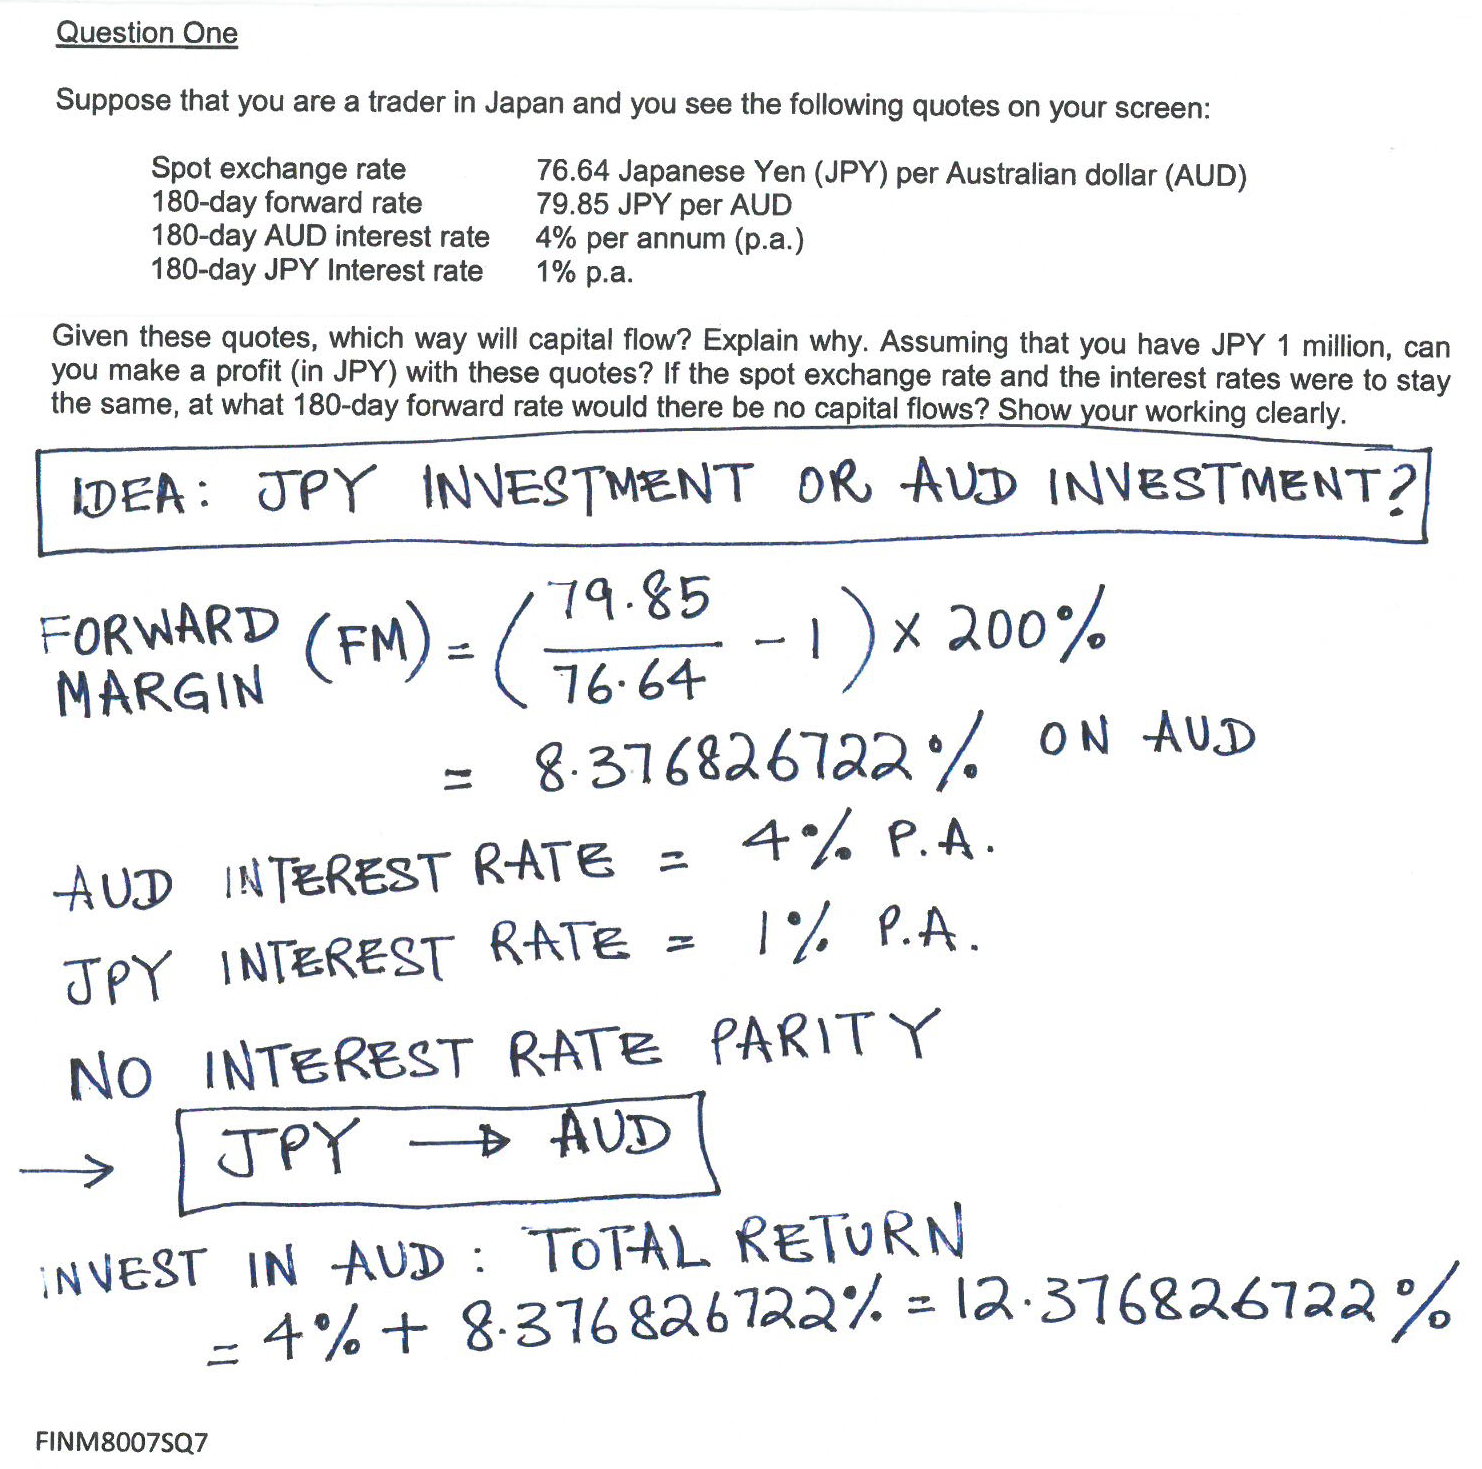 Question One
Suppose that you are a trader in Japan and you see the following quotes on your screen:
Spot exchange rate 76.64 Japanese Yen (JPY) per Australian dollar (AUD)
180-day forward rate 79.85 JPY per AUD
180-day AUD interest rate 4% per annum (p.a.)
180-day JPY Interest rate 1% p.a.
Given these quotes, which way will capital flow? Explain why. Assuming that you have JPY 1 million, can
you make a profit (in JPY) with these quotes? If the spot exchange rate and the interest rates were to stay
the same, at what 180-day forward rate would there be no capital flows? Show your working clearly.
IDEA: JPY INVESTMENT OR AUD INVESTMENT?
FORWARD MARGIN (FM) = (79.85 / 76.64 - 1) × 200%
= 8.376826722% ON AUD
AUD INTEREST RATE = 4% P.A.
JPY INTEREST RATE = 1% P.A.
NO INTEREST RATE PARITY
→ JPY → AUD
INVEST IN AUD: TOTAL RETURN
= 4% + 8.376826722% = 12.376826722%
FINM8007SQ7